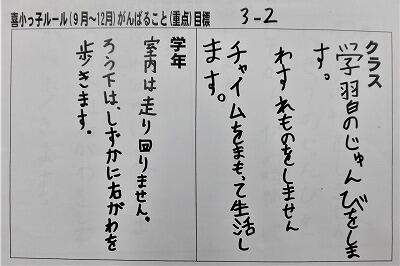 喜小っ子ルール(9月～12月)がんばること(重点)目標
3-2
クラス
学習のじゅんびをしま
す。
わすれものをしません
チャイムをまもって生活し
ます。
学年
室内は走り回りません。
ろう下は、しずかに右がわを
歩きます。